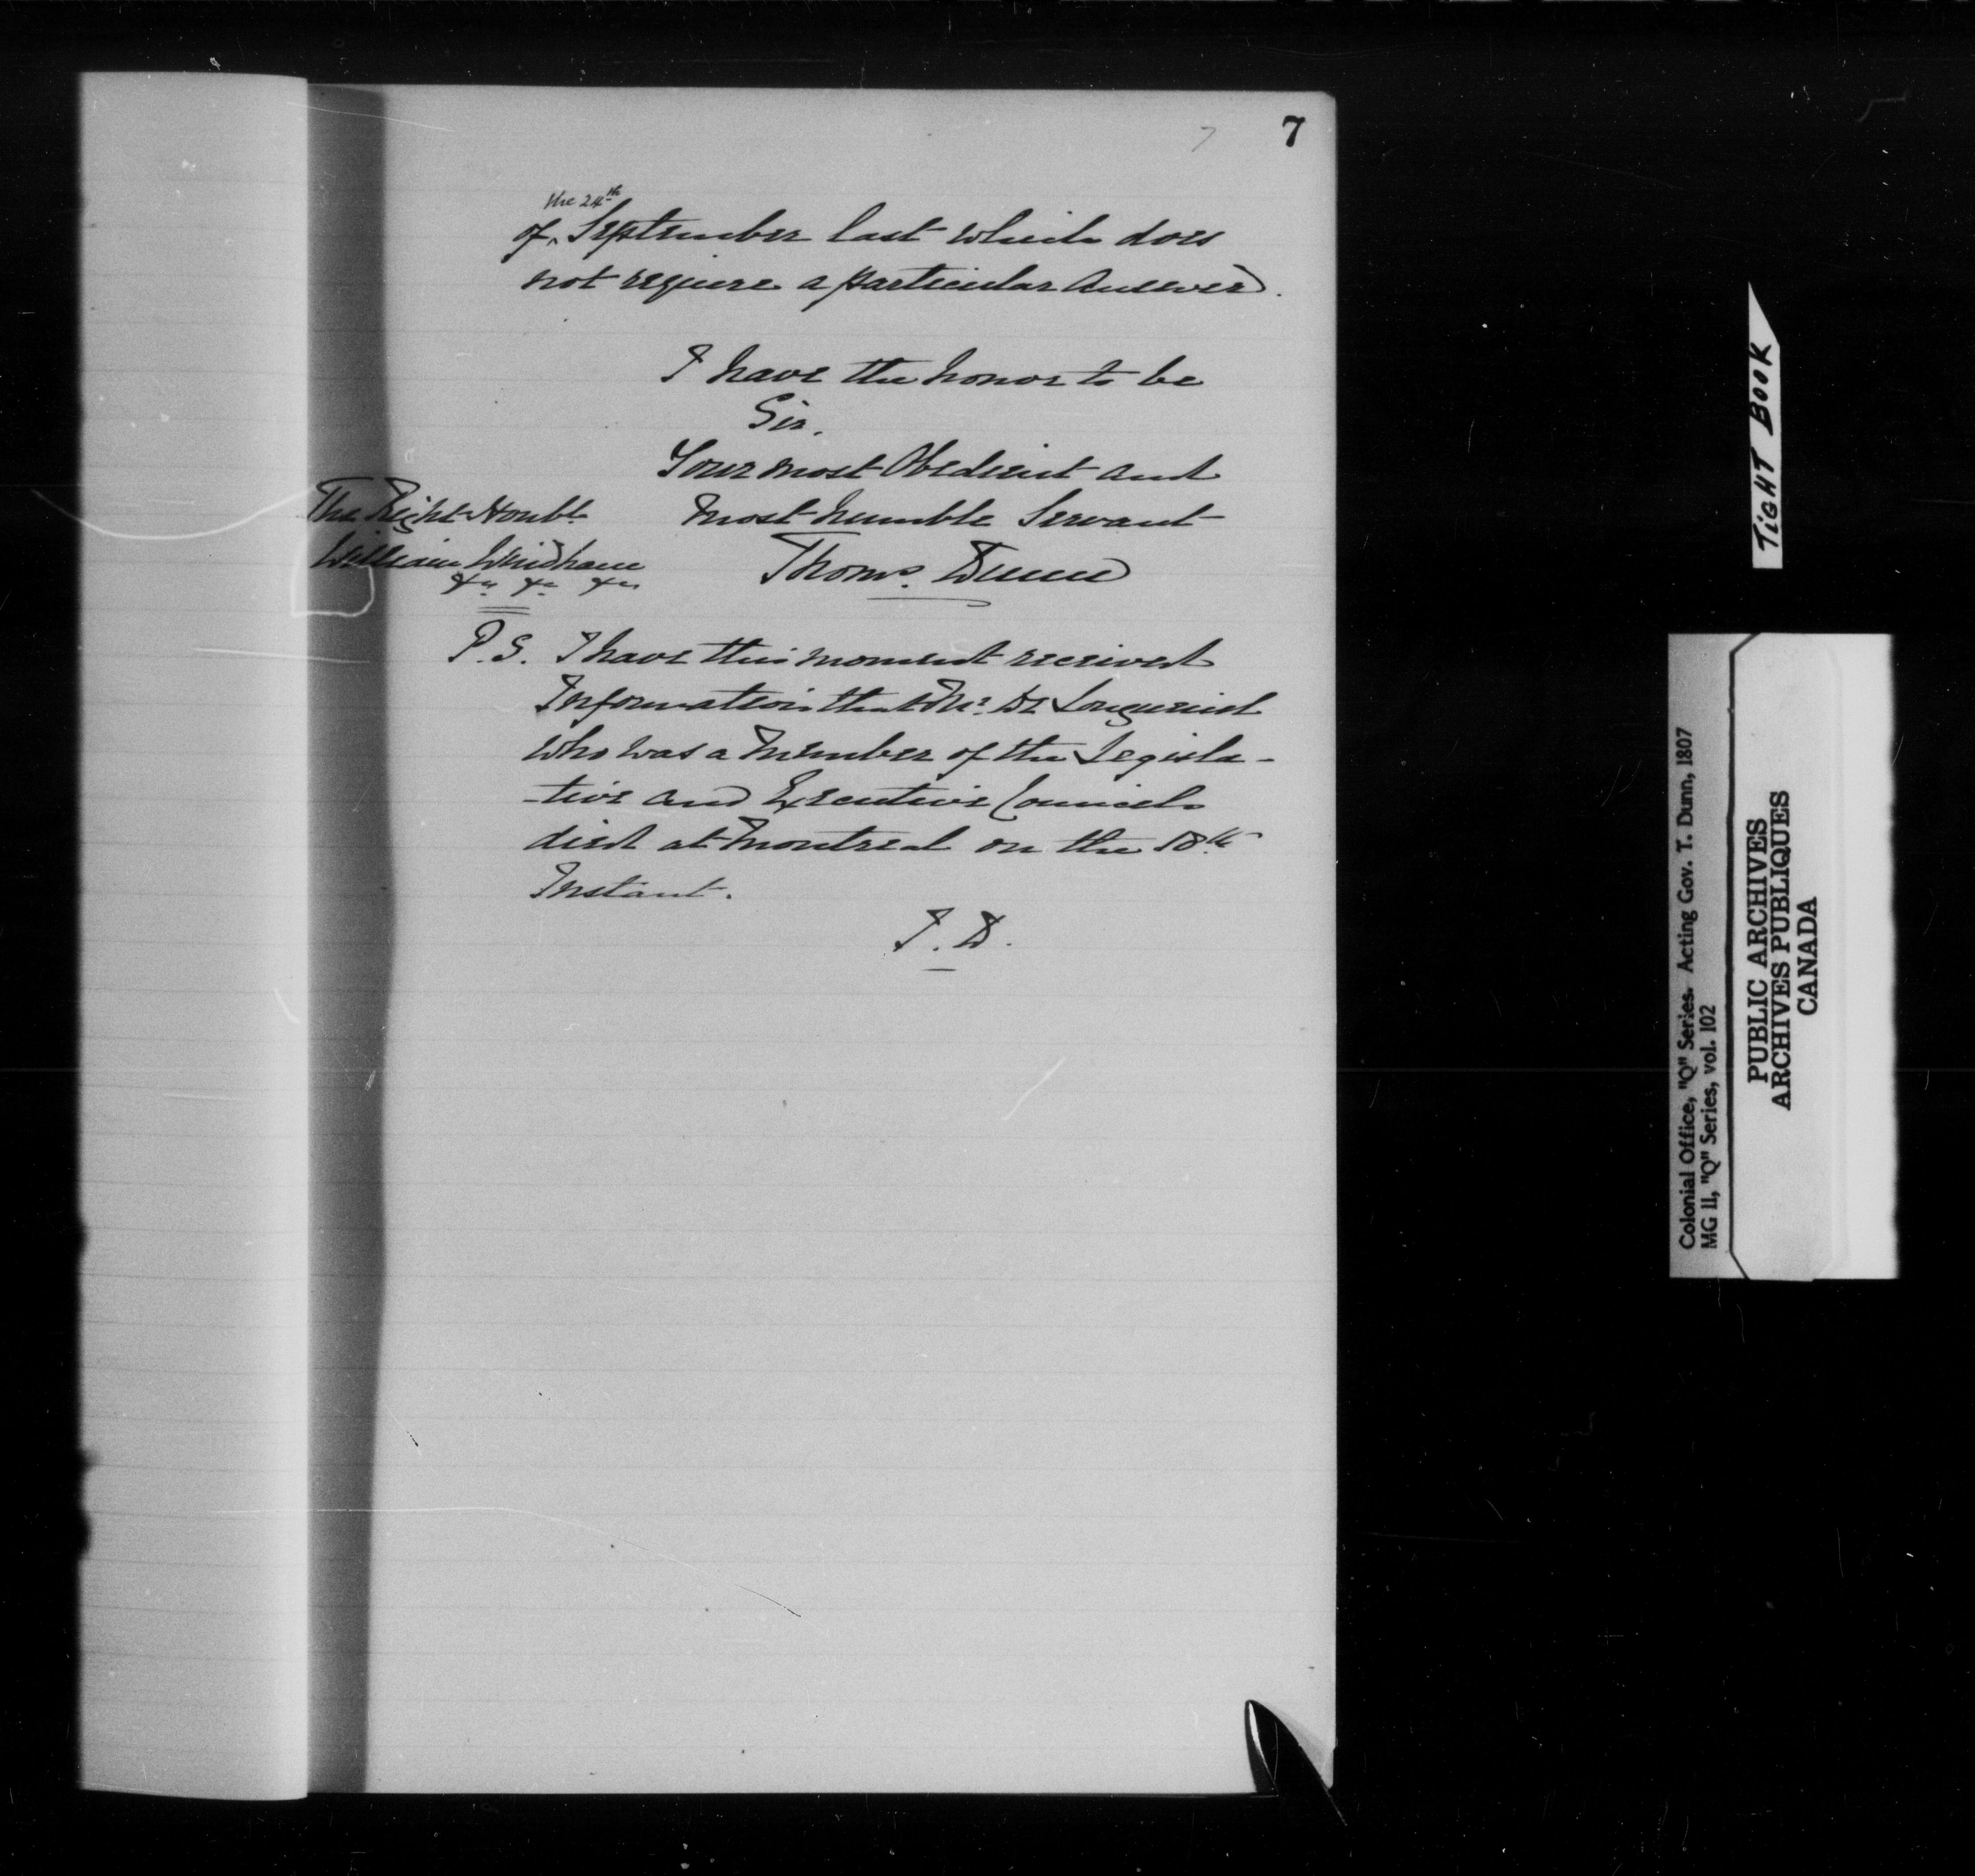 7
7
the 24th
of ^ September last which does
not require a particular Answer.
I have the honor to be
Sir,
Your most Obedient and
The Right Honble most humble Servant
William Windham Thoms. Dunn
&c &c &c
P.S. I have this moment received
Information that Mr. De Longueuil
who was a Member of the Legisla-
-tive and Executive Councils
died at Montreal on the 18th
Instant.
T. D.
TiGHT BOOK
Colonial Office, "Q" Series. Acting Gov. T. Dunn, 1807
MG 11, "Q" Series, vol. 102
PUBLIC ARCHIVES
ARCHIVES PUBLIQUES
CANADA